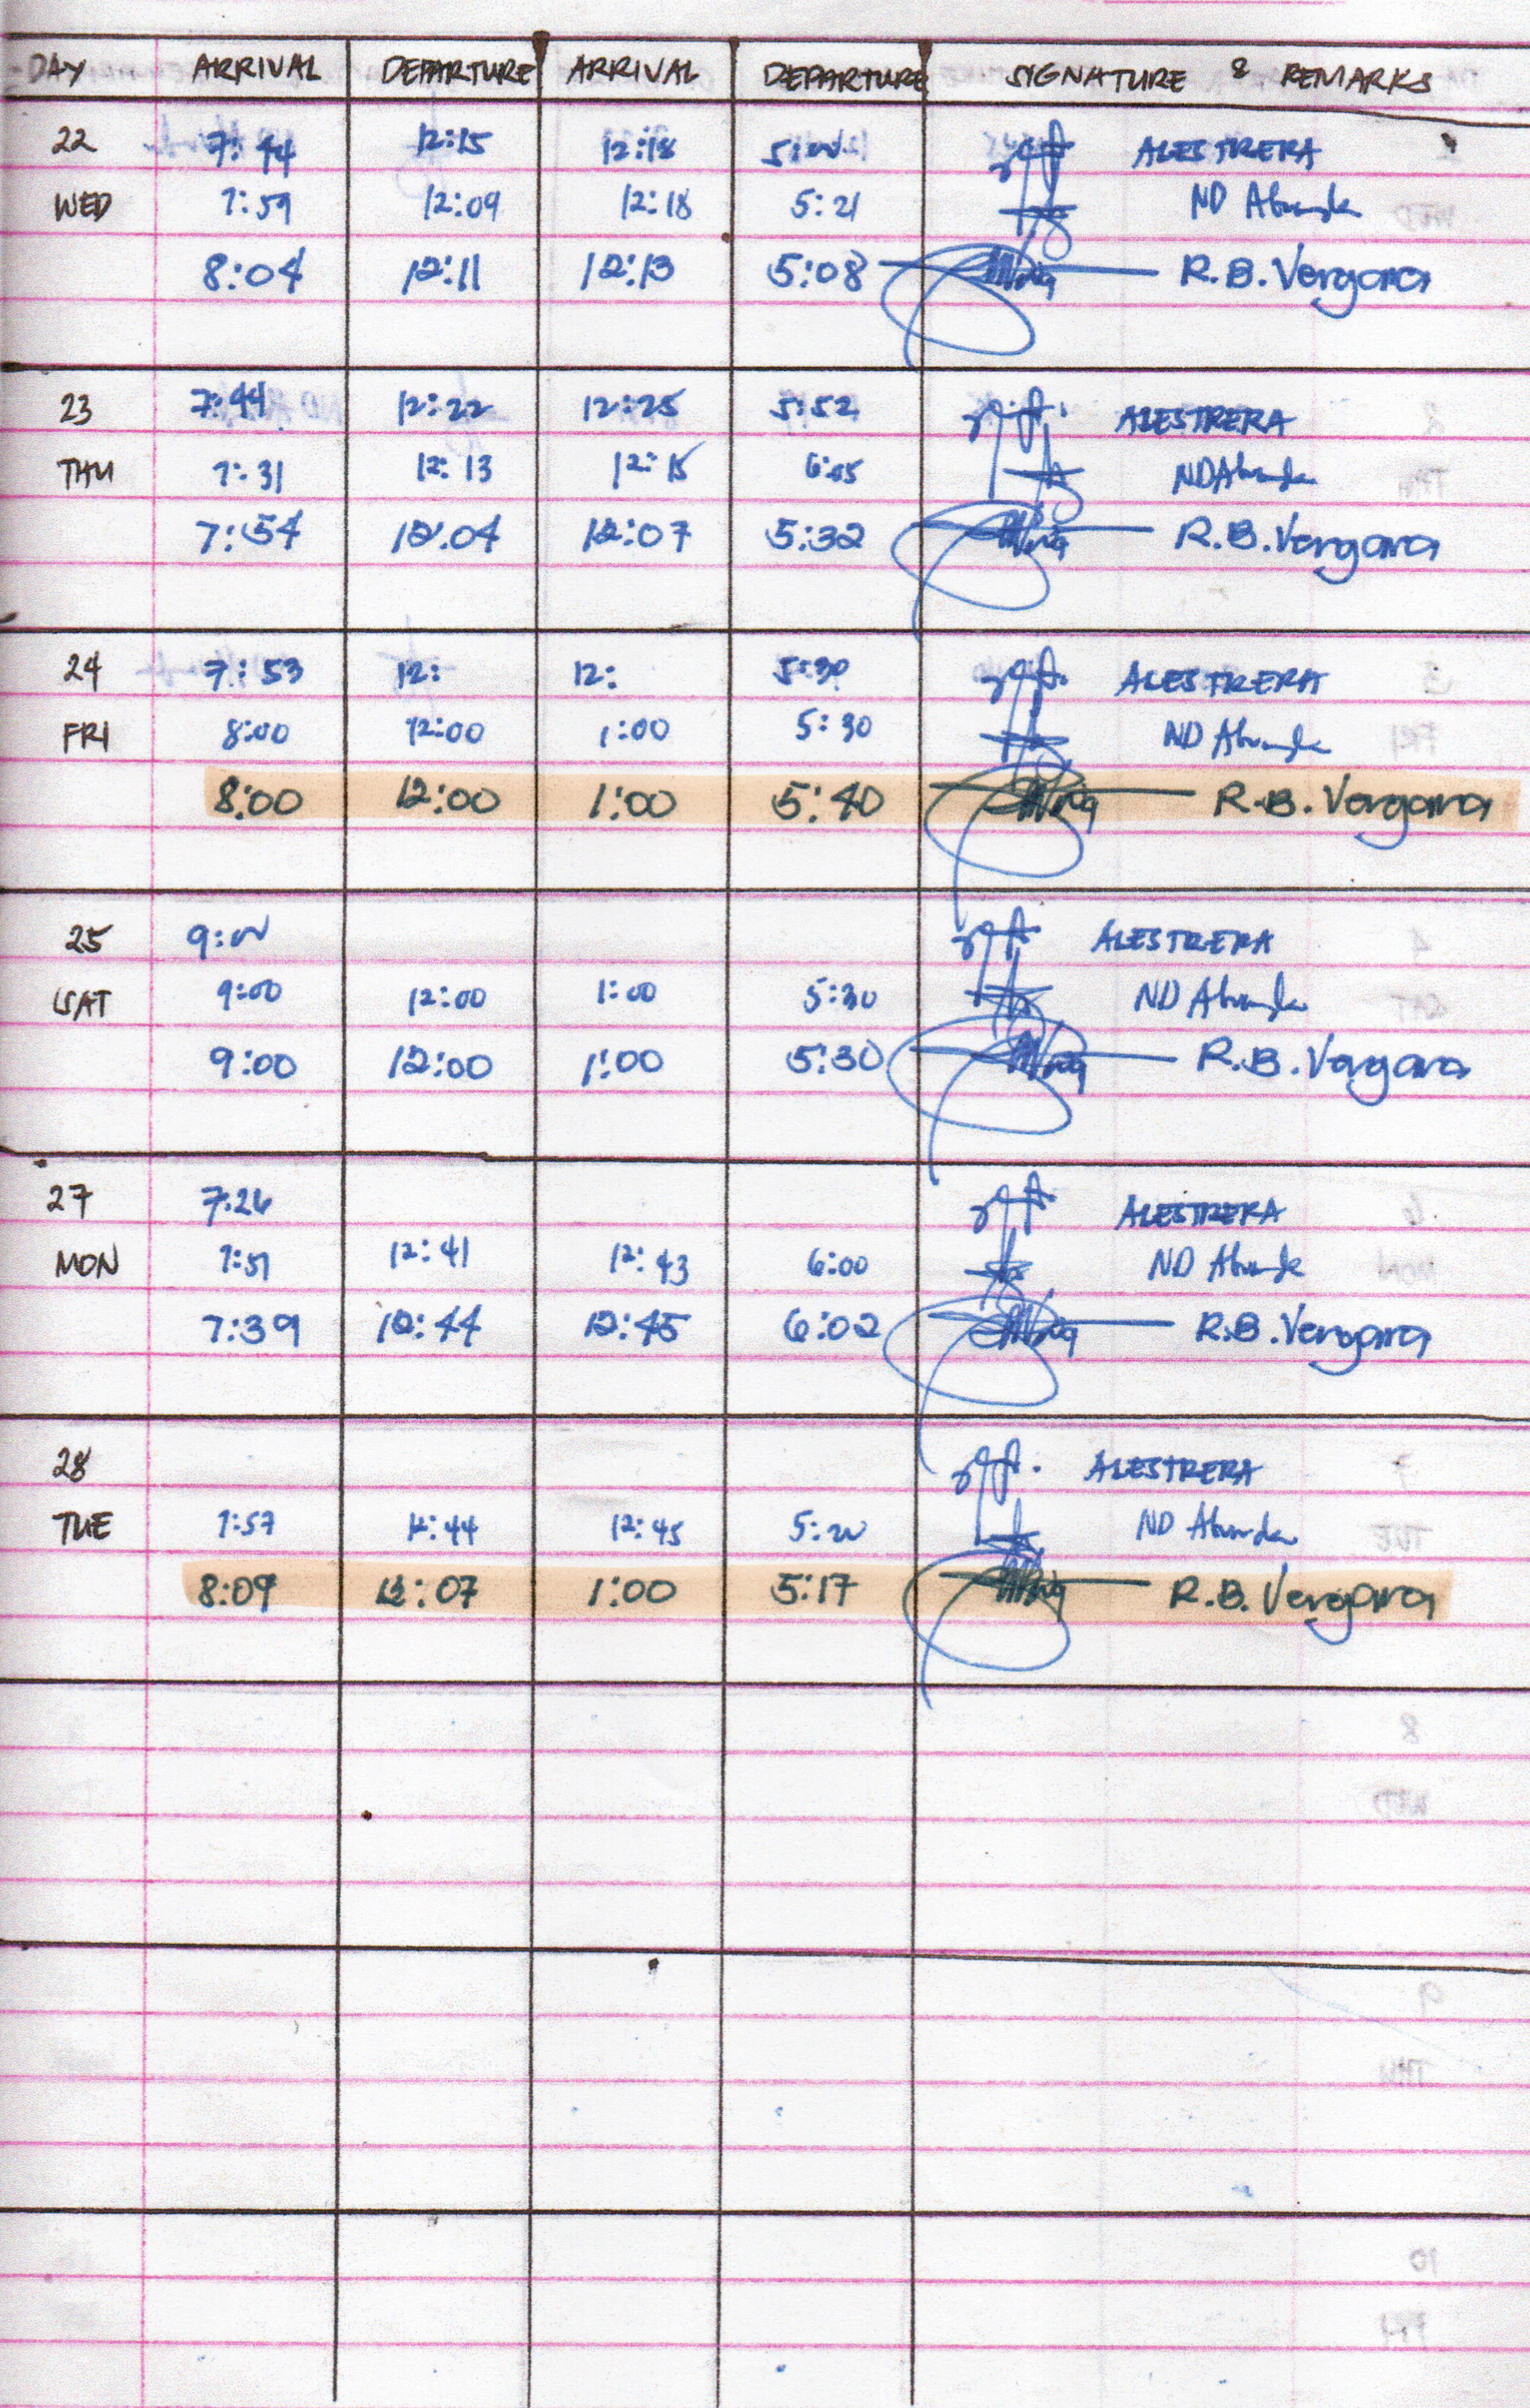 DAY ARRIVAL DEPARTURE ARRIVAL DEPARTURE SIGNATURE & REMARKS
22 7:44 12:15 12:18 5:00 ALESTRERA
WED 7:59 12:09 12:18 5:21 ND Abunda
8:04 12:11 12:13 5:08 R.B. Vergara
23 7:44 12:22 12:25 5:52 ALESTRERA
THU 7:31 12:13 12:15 6:05 ND Abunda
7:54 12:04 12:07 5:32 R.B. Vergara
24 7:53 12: 12: 5:30 ALESTRERA
FRI 8:00 12:00 1:00 5:30 ND Abunda
8:00 12:00 1:00 5:40 R.B. Vergara
25 9:00 ALESTRERA
SAT 9:00 12:00 1:00 5:30 ND Abunda
9:00 12:00 1:00 5:30 R.B. Vergara
27 7:26 ALESTRERA
MON 7:51 12:41 12:43 6:00 ND Abunda
7:39 12:44 12:45 6:02 R.B. Vergara
28 ALESTRERA
TUE 7:57 12:44 12:45 5:20 ND Abunda
8:09 12:07 1:00 5:17 R.B. Vergara